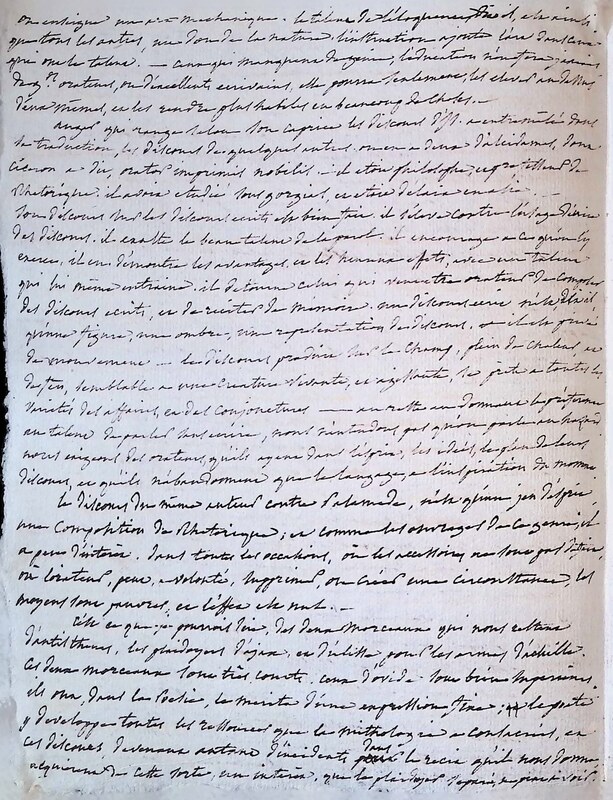 on enseigne un art mechanique. le talent de l'éloquence, dit il, est ainsi
que tous les autres, un don de la nature. l'instruction ajoute l'art dans ceux
qui ont le talent. — ceux qui manquent de genie, l'éducation n'en fera jamais
de gds orateurs, ou d'excellents ecrivains, elle pourra seulement, les elever au dessus
d'eux mêmes, et les rendre plus habiles en beaucoup de choses. —
auger qui range selon son caprice les discours d'Is. a entremêlé dans
sa traduction, les discours de quelques autres. on en a deux d'alcidamas, dont
Ciceron a dit, orator imprimis nobilis — il etoit philosophe, et professeur de
Rhetorique. il avoit etudié sous gorgias, et etoit d'elaia en asie. —
son discours sur les discours ecrits est bien fait. il s'eleve contre l'usage d'ecrire
des discours. il exalte le beau talent de la parole. il encourage a ce qu'on s'y
exerce, il en démontre les avantages, et les heureux effets, avec un talent
qui lui même entraine. il detourne celui qui veut etre orateur de composer
des discours ecrits, et de reciter de memoire. un discours ecrit n'est, dit il,
qu'une figure, une ombre, une representation de discours. et il est privé
de mouvement — le discours produit sur le champ, plein de chaleur, et
de feu, semblable a une creature vivante, et agissante, se prete a toutes les
variétés des affaires, et des conjonctures — au reste en donnant la préférence
au talent de parler sans ecrire, nous n'entendons pas qu'on parle au hazard
nous exigeons des orateurs, qu'ils ayent dans l'esprit, les idées, le plan de leurs
discours, et qu'ils n'abandonnent que le langage, a l'inspiration du moment.
le discours du même auteur contre Palamede, n'est qu'un jeu d'esprit
une Composition de Rhetorique; et comme les ouvrages de ce genre, il
a peu d'interêt. dans toutes les occasions, où les accessoires ne sont pas d'interêt,
où l'orateur, peut, a volonté, supprimer, ou créer une circonstance, les
moyens sont pauvres, et l'effet est nul. —
C'est ce que je pourrois dire, des deux morceaux qui nous restent
d'antisthenes, les plaidoyers d'ajax, et d'ulisse pour les armes d'achille.
Ces deux morceaux sont très courts. ceux d'ovide sont bien superieurs,
ils ont, dans la Poesie, le merite d'une expression fine; le poete
y developpe toutes les ressources que la mithologie a consacrées, et
ces discours, devenant autant d'incidents dans le recit qu'il nous donne,
acquierent de cette sorte, un interêt, que le plaidoyer separé, ne peut avoir